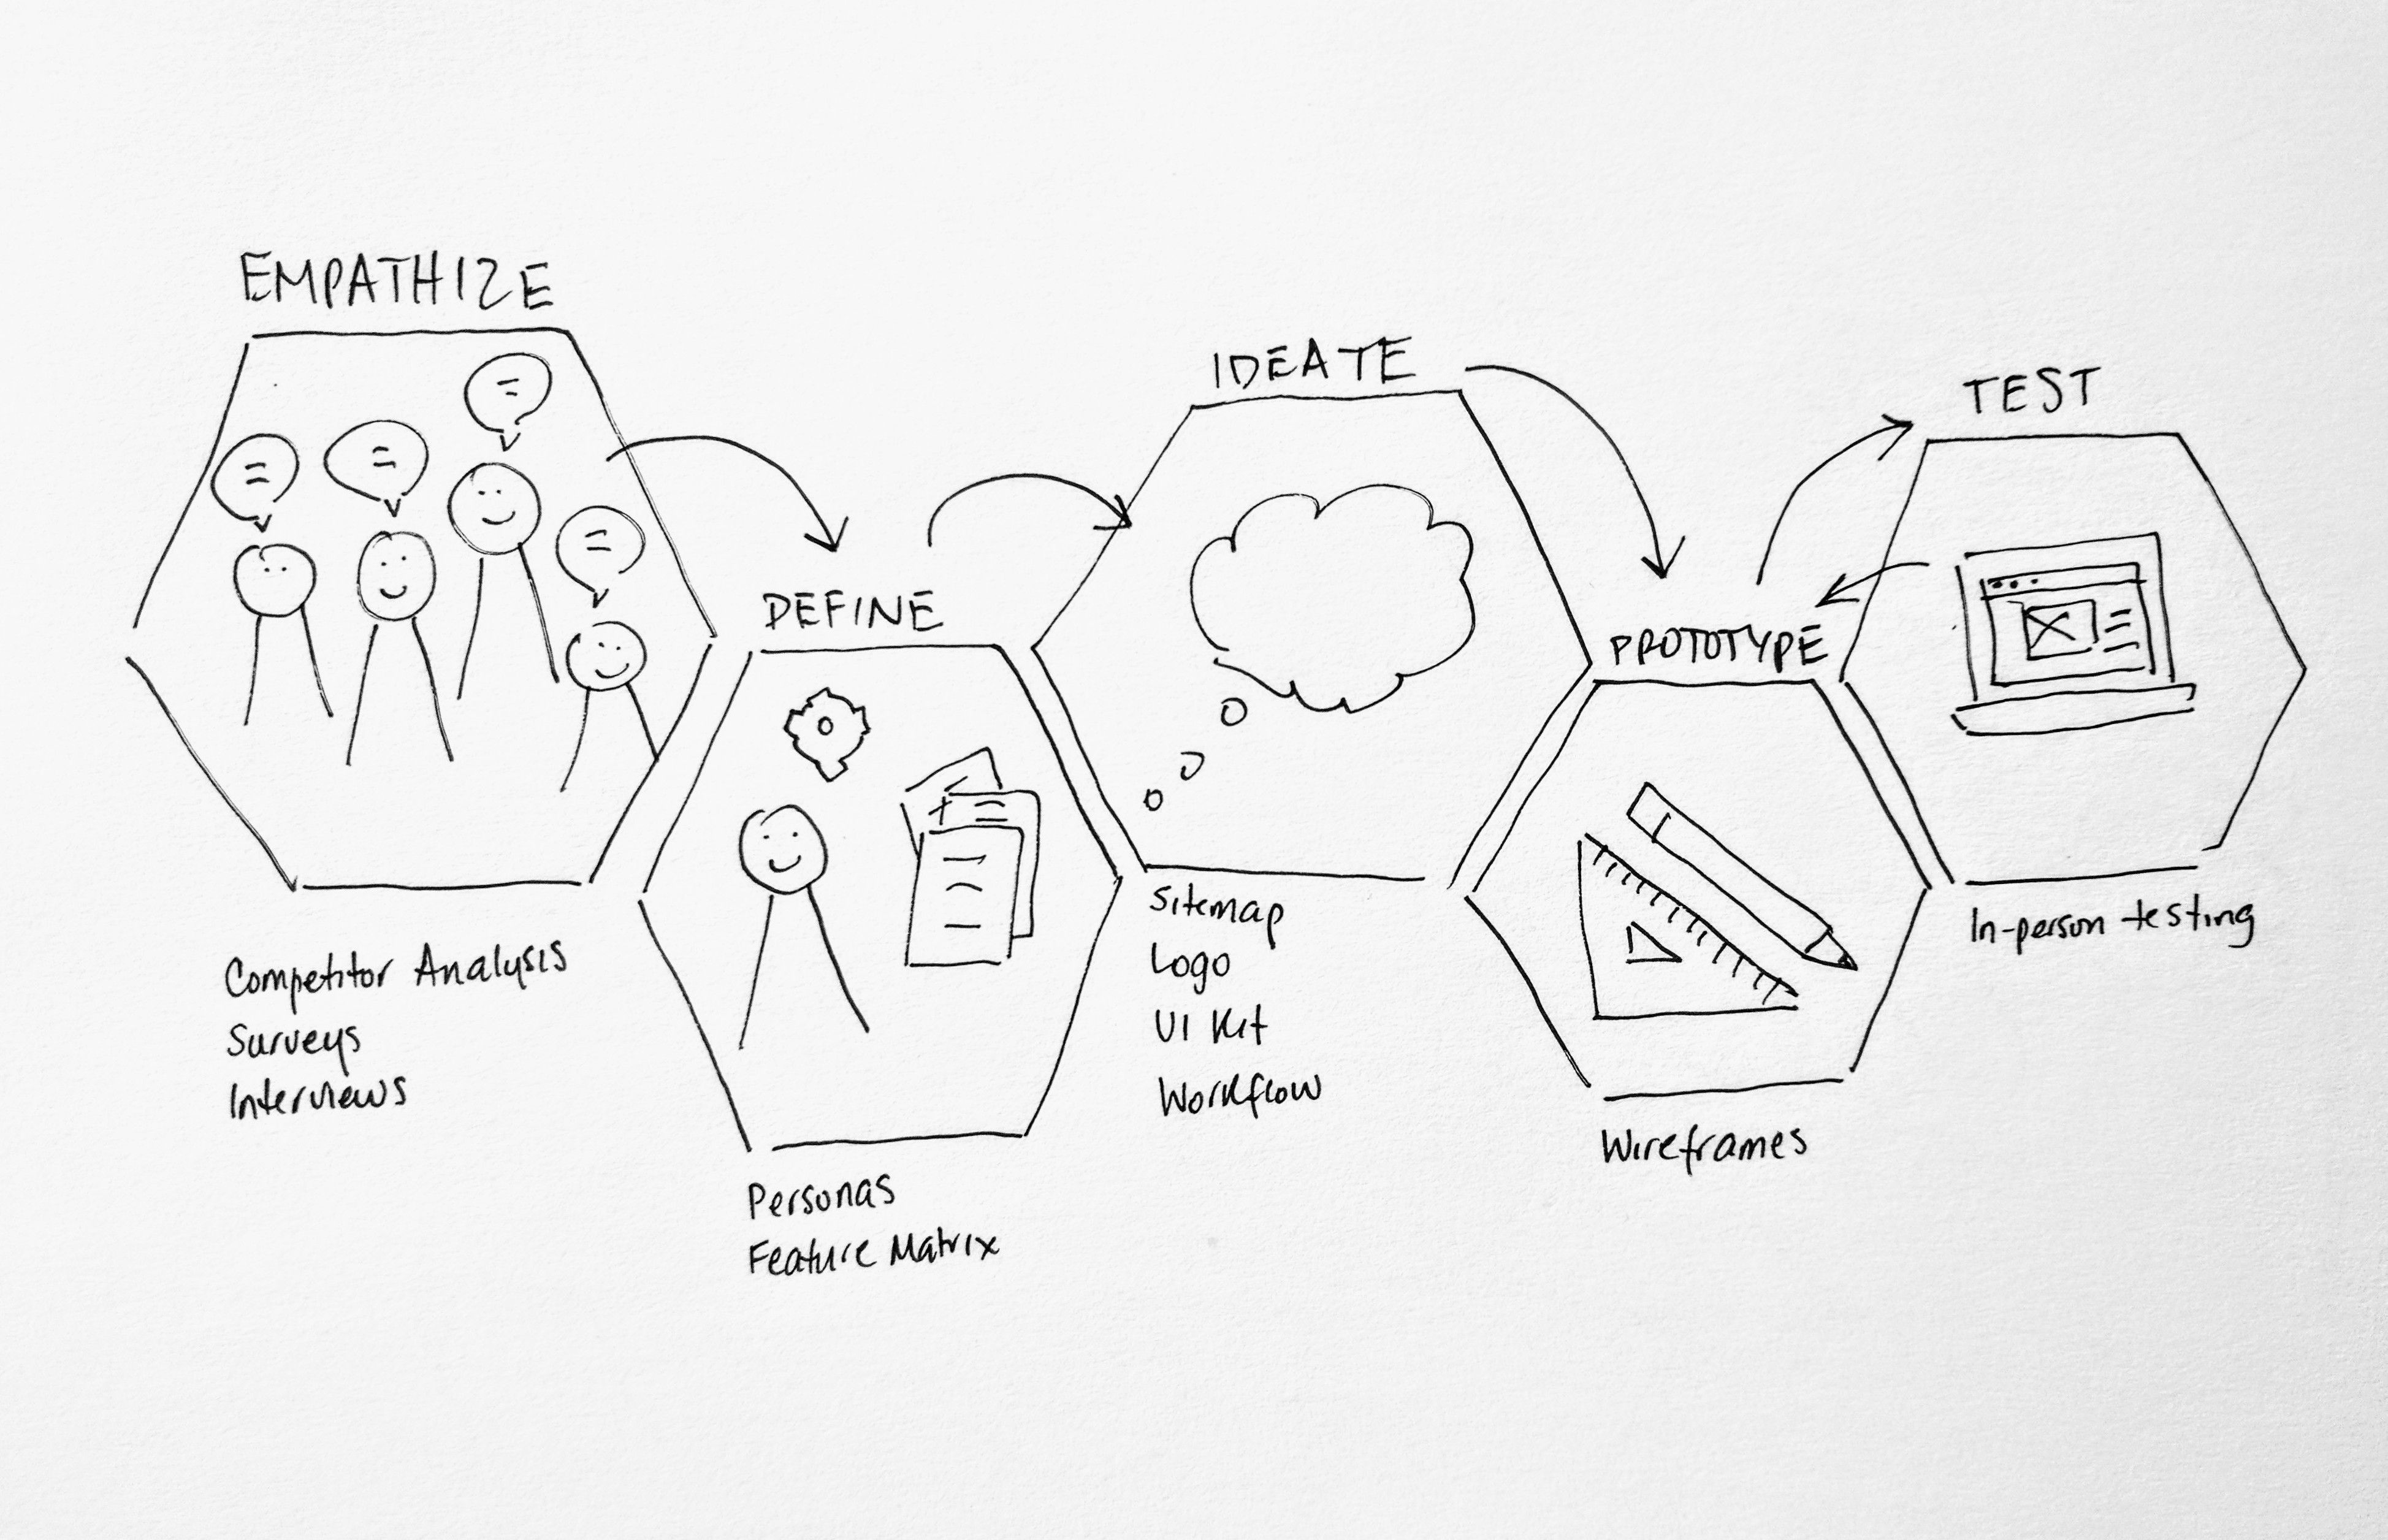 EMPATHIZE
Competitor Analysis
Surveys
Interviews
DEFINE
Personas
Feature Matrix
IDEATE
Sitemap
Logo
UI Kit
Workflow
PROTOTYPE
Wireframes
TEST
In-person testing